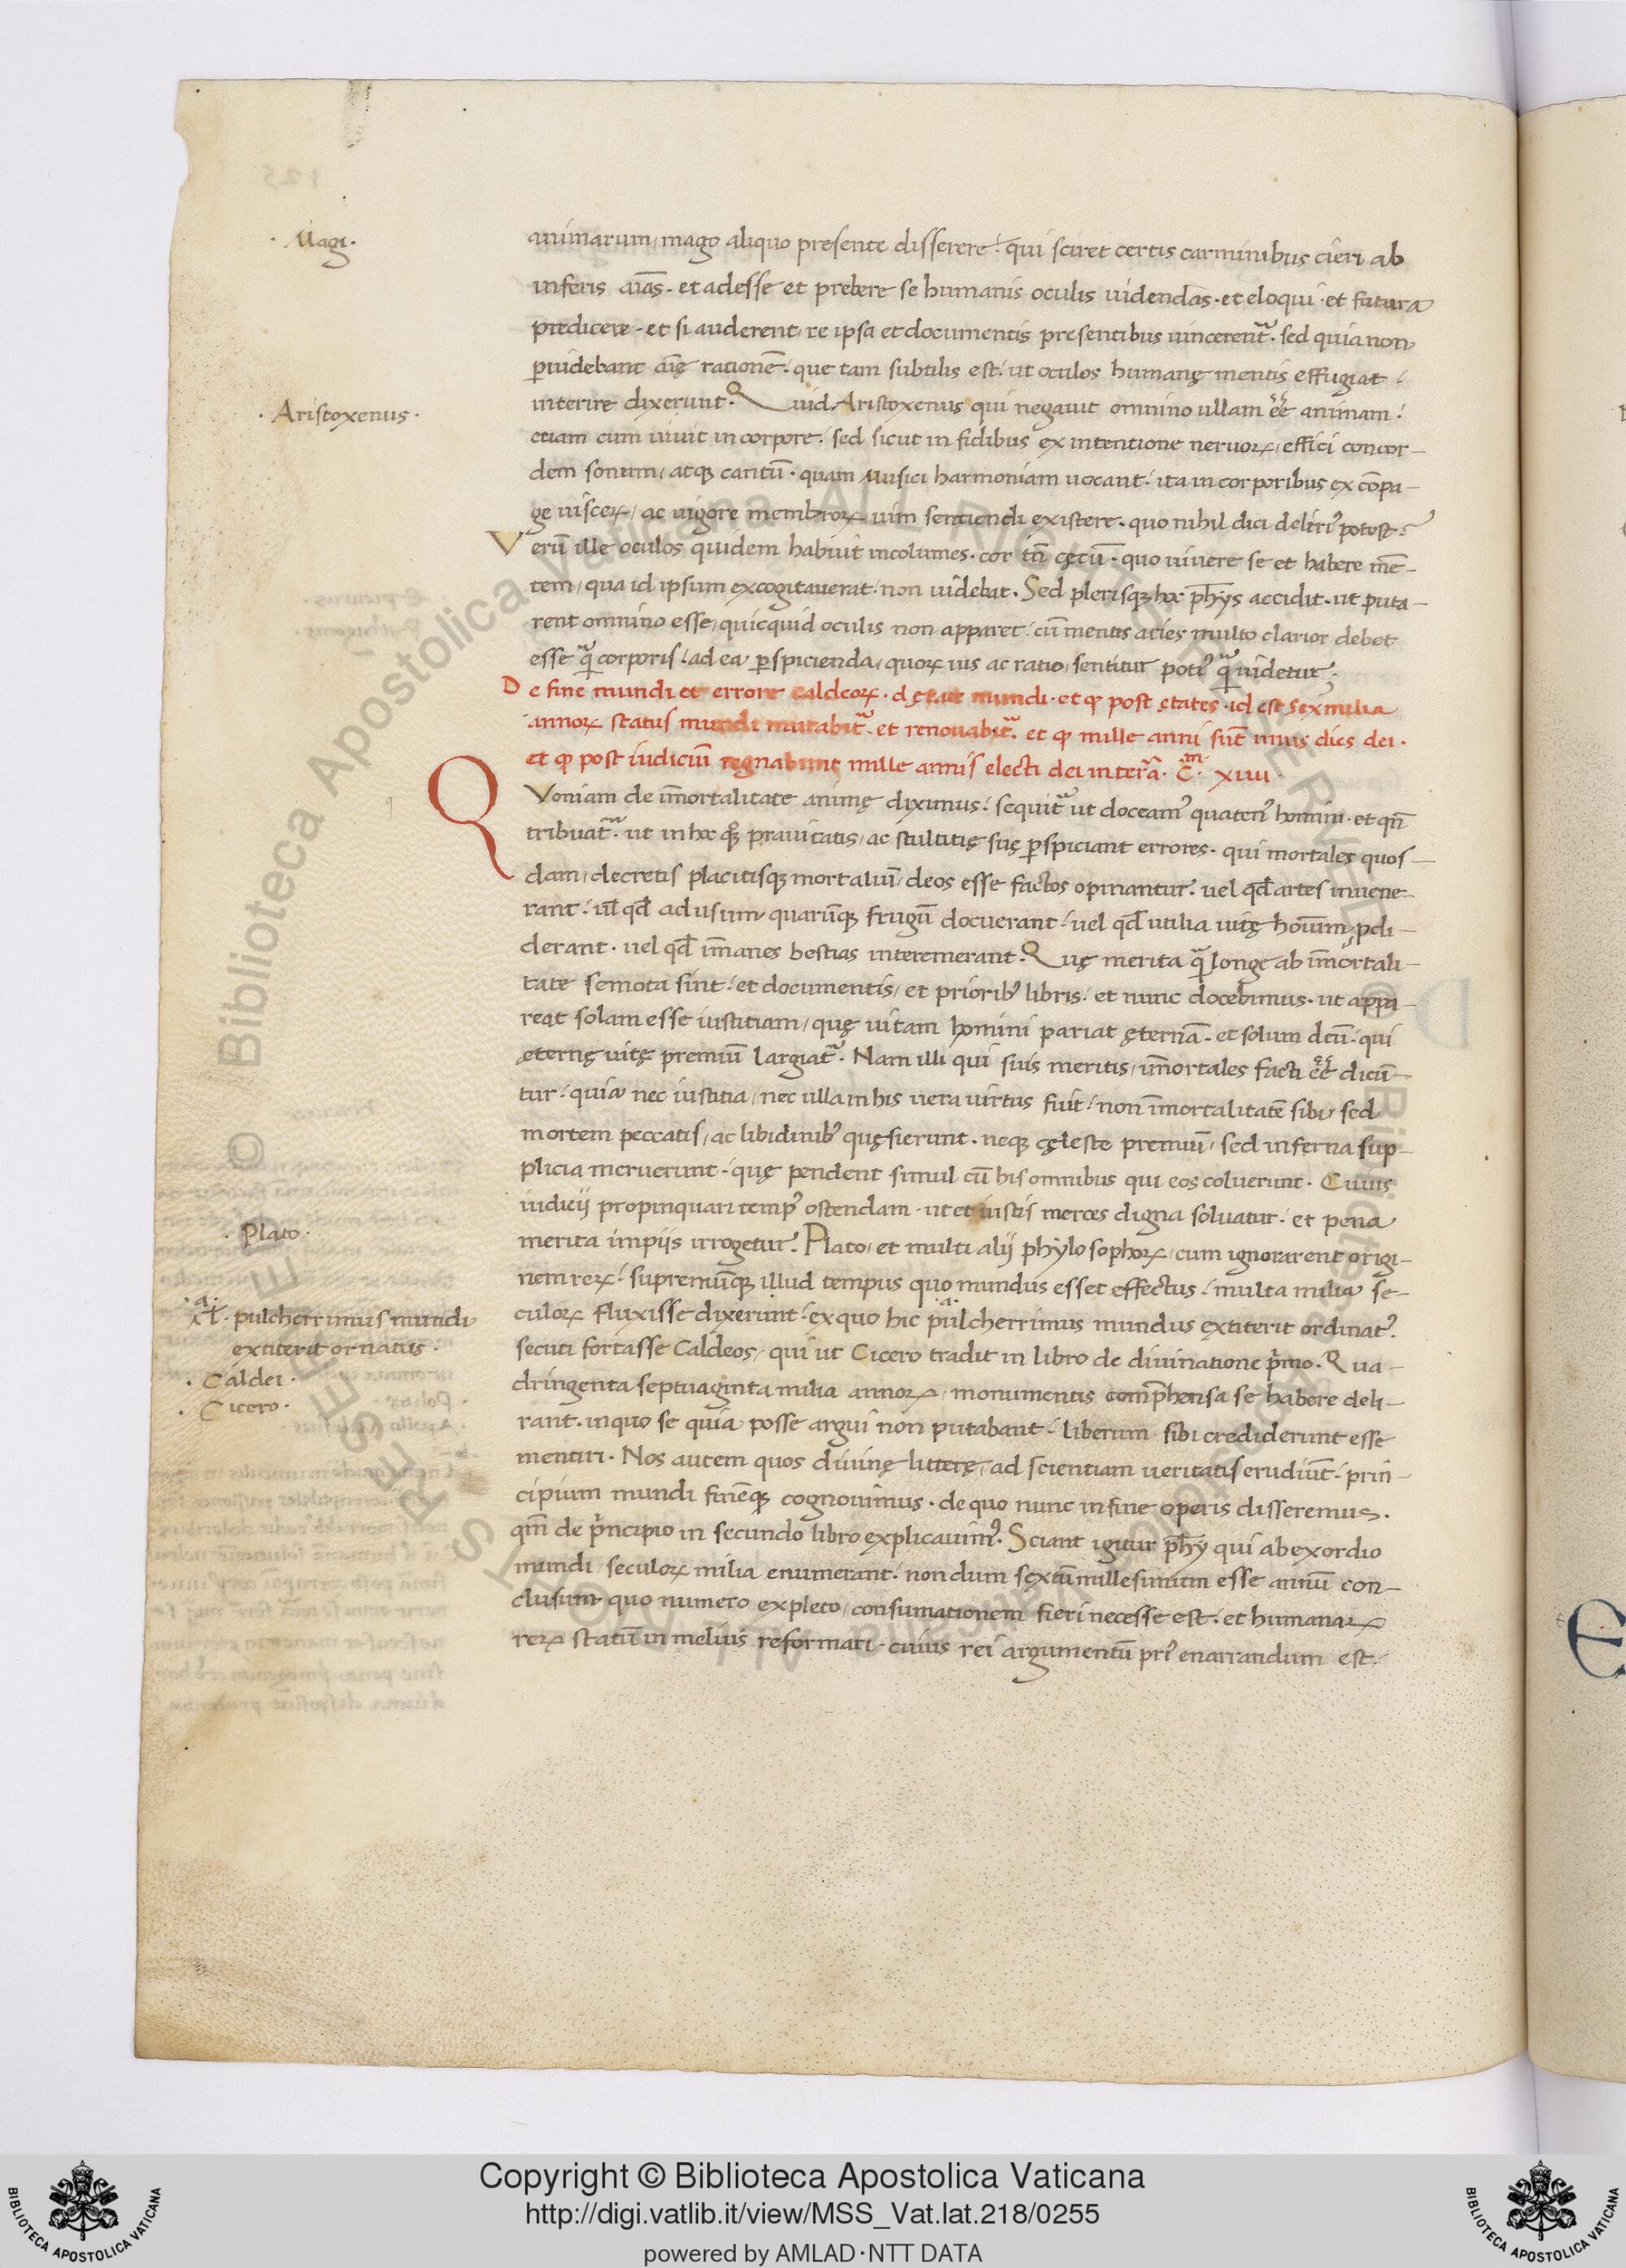 · Magi ·
animarum / mago aliquo presente disserere / qui sciret certis carminibus cieri ab
inferis aīas · et adesse et prebere se humanis oculis uidendas · et eloqui · et futura
predicere · et si auderent / re ipsa et documentis presentibus uincerent᷑ · sed quia non
ꝑuidebant aīę rationē · que tam subtilis est · ut oculos humanę mentis effugiat ·
· Aristoxenus ·
interire dixerunt · Quid Aristoxenus qui negauit omnino ullam eē animam ·
etiam cum uiuit in corpore · sed sicut in fidibus ex intentione neruoꝝ / effici concor-
dem sonum / atqꝫ cantū · quam Musici harmoniam uocant · ita in corporibus ex cōpa-
ge uisceꝝ / ac uigore membroꝝ uim sentiendi existere · quo nihil dici deliriꝰ potest ·
Verū ille oculos quidem habuit incolumes · cor tn̄ cęcū · quo uiuere se et habere mē-
tem / qua id ipsum excogitauerat · non uidebat · Sed plerisqꝫ hoc ph̄ys accidit · ut puta-
rent omnino esse / quicquid oculis non apparet · cū mentis acies multo clarior debet
esse q̄ corporis · ad ea ꝑspicienda / quoꝝ uis ac ratio / sentitur potiꝰ q̄ uidetur ·
De fine mundi et errore caldeoꝝ · d ętate mundi · et ꝙ post ętates · id est sex milia
annoꝝ status mundi mutabit᷑ · et renouabit᷑ · et ꝙ mille anni sūt unus dies dei ·
et ꝙ post iudiciū regnabunt mille annis electi dei in terra · C · XIIII ·
Quoniam de īmortalitate animę diximus · sequit᷑ ut doceamꝰ quatenꝰ homini · et qn̄
tribuat᷑ · ut in hoc qꝫ prauitatis / ac stultitię suę ꝑspiciant errores · qui mortales quos-
dam / decretis placitisqꝫ mortaliū / deos esse factos opinantur · uel qđ artes inuene-
rant · ul̄ qđ ad usum quarūqꝫ frugū docuerant · uel qđ utilia uitę hoīum pdi-
derant · uel qđ īmanes bestias interemerant · Quę merita q̄ longe ab īmortali-
tate semota sint · et documentis / et prioribꝰ libris · et nunc docebimus · ut appa-
reat solam esse iustitiam / quę uitam homini pariat ęternā · et solum deū · qui
ęternę uitę premiū largiat᷑ · Nam illi qui suis meritis / īmortales facti eē dicū-
tur · quia nec iustitia / nec ulla in his uera uirtus fuit · non īmortalitatē sibi sed
mortem peccatis / ac libidinibꝰ quęsierunt · neqꝫ cęleste premiū / sed inferna sup-
plicia meruerunt · quę pendent simul cū his omnibus qui eos coluerunt · Cuius
iudicij propinquari tempꝰ ostendam · ut et iustis merces digna soluatur · et pena
· Plato ·
merita impijs irrogetur · Plato / et multi alij phylosophoꝝ / cum ignorarent origi-
nem reꝝ · supremūqꝫ illud tempus quo mundus esset effectus · multa milia se-
· a · al · pulcherrimus mundi
extiterit ornatus ·
culoꝝ fluxisse dixerunt · ex quo hic pulcherrimus mundus extiterit ordinatꝰ ·
secuti fortasse Caldeos / qui ut Cicero tradit in libro de diuinatione pͥmo · Qua-
· Caldei ·
· Cicero ·
dringenta septuaginta milia annoꝝ / monumentis comp̄hensa se habere deli-
rant · in quo se quia posse argui non putabant · liberum sibi crediderunt esse
mentiri · Nos autem quos diuinę litterę / ad scientiam ueritatis erudiūt · prin-
cipium mundi finēqꝫ cognouimus · de quo nunc in fine operis disseremus ·
qm̄ de pͥncipio in secundo libro explicauimꝰ · Sciant igitur ph̄y qui ab exordio
mundi / seculoꝝ milia enumerant · nondum sextū millesimum esse annū con-
clusum quo numero expleto / consumationem fieri necesse est · et humanaꝝ
reꝝ statū in melius reformari · cuius rei argumentū priꝰ enarrandum est ·
Copyright © Biblioteca Apostolica Vaticana
http://digi.vatlib.it/view/MSS_Vat.lat.218/0255
powered by AMLAD·NTT DATA
BIBLIOTECA APOSTOLICA VATICANA
BIBLIOTECA APOSTOLICA VATICANA